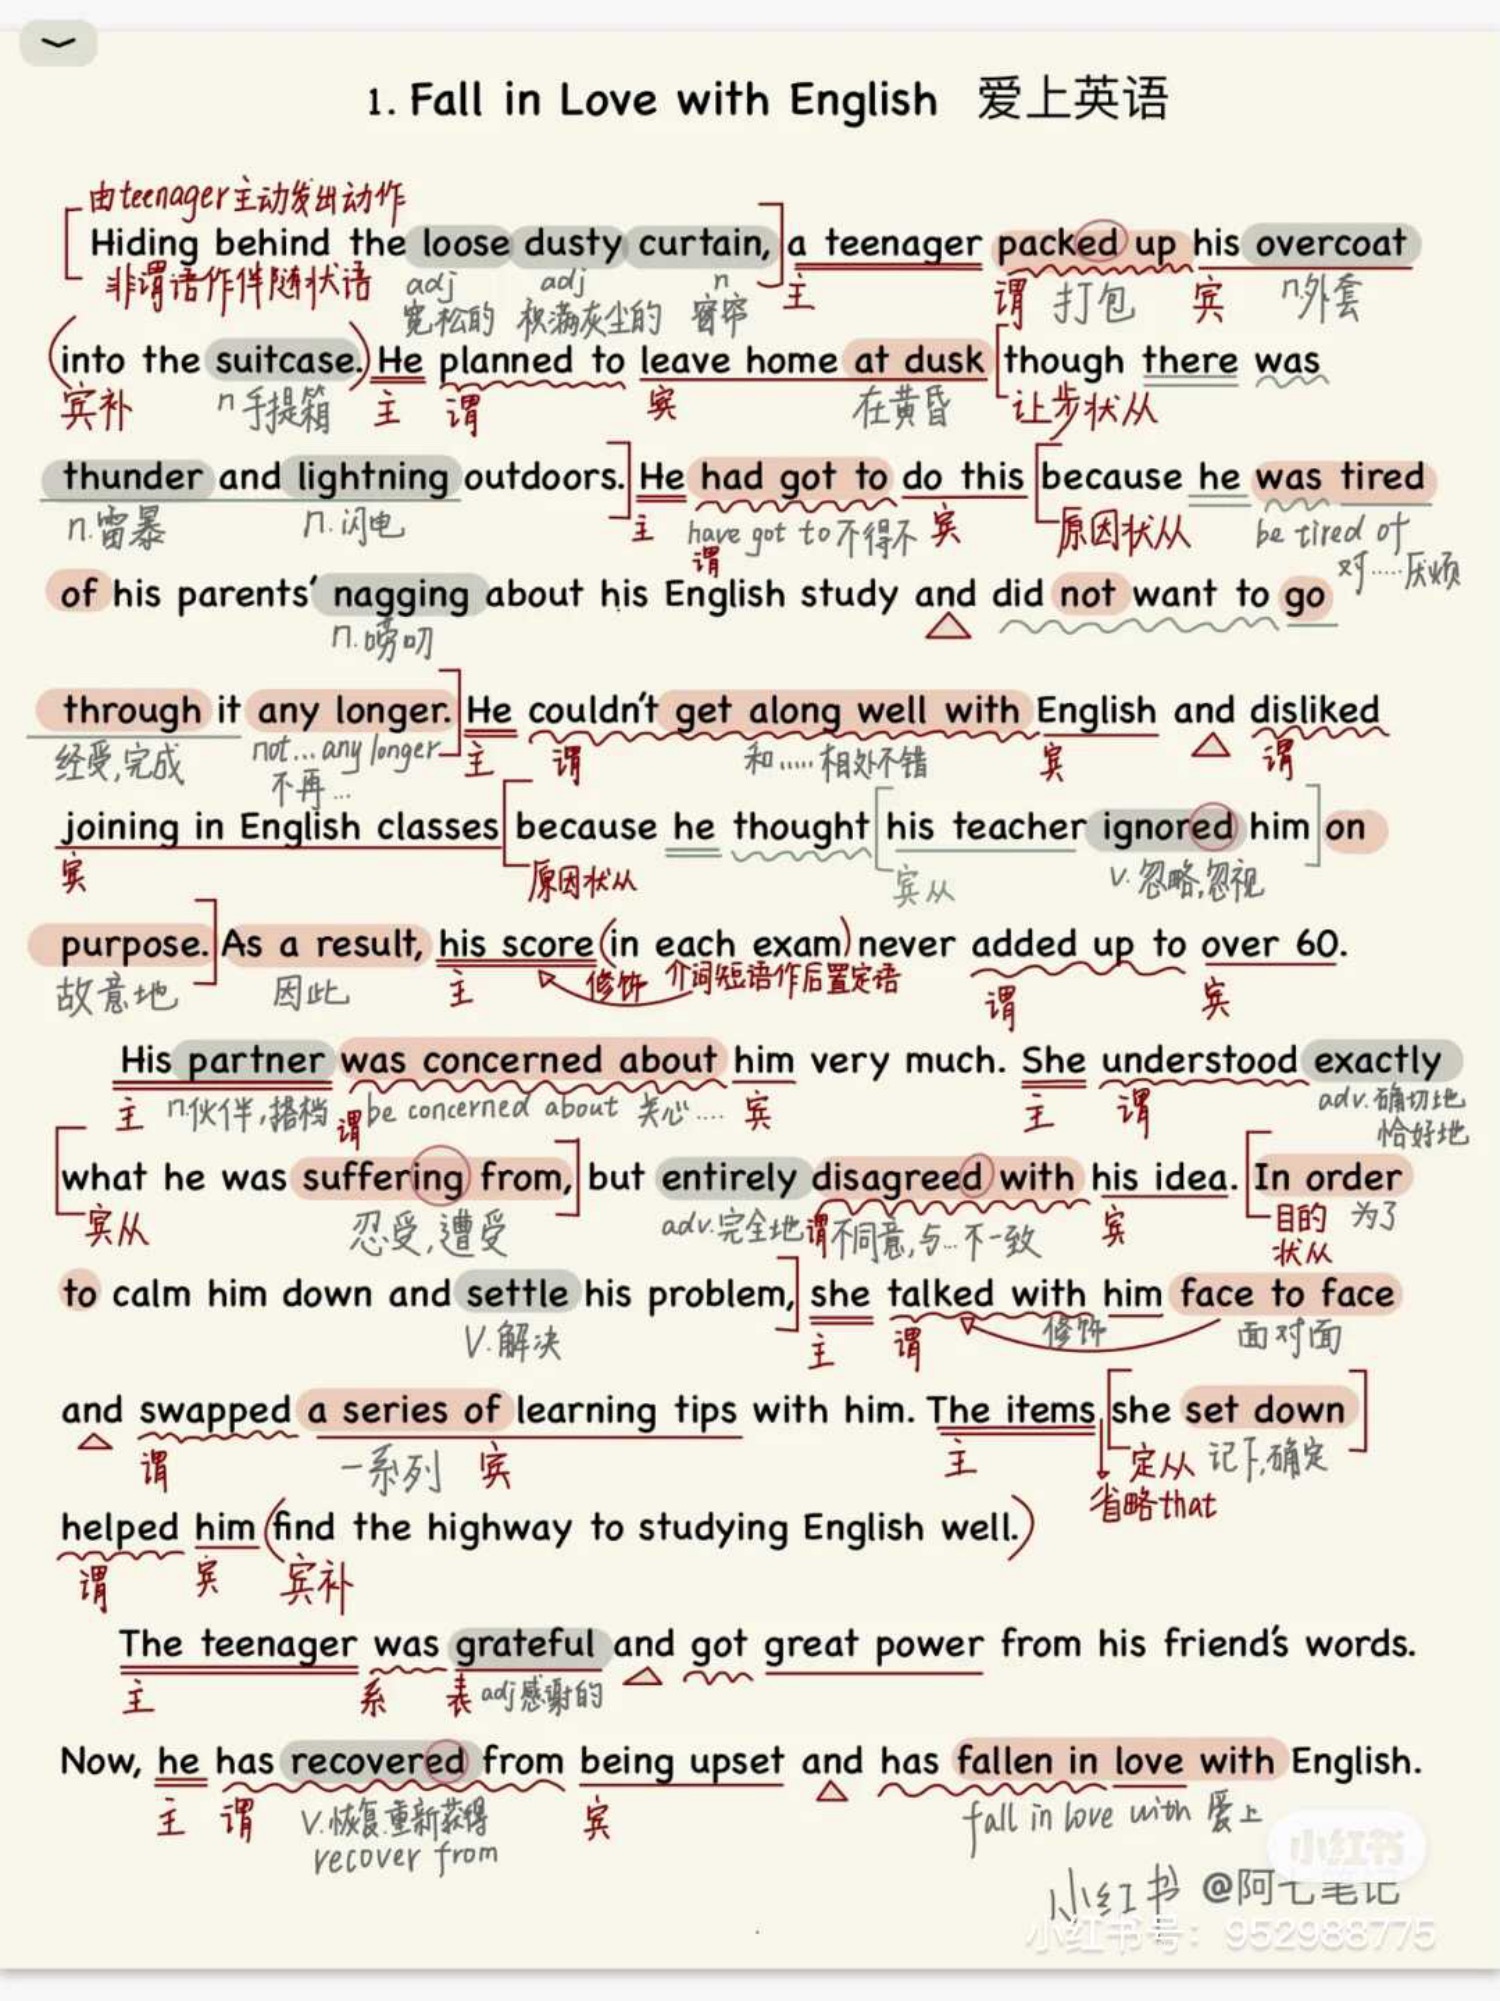 1. Fall in Love with English 爱上英语
由teenager主动发出动作
Hiding behind the loose dusty curtain, a teenager packed up his overcoat
非谓语作伴随状语 adj adj n 主 谓 打包 宾 n.外套
宽松的 积满灰尘的 窗帘
into the suitcase. He planned to leave home at dusk though there was
宾补 n手提箱 主 谓 宾 在黄昏 让步状从
thunder and lightning outdoors. He had got to do this because he was tired
n.雷暴 n.闪电 主 have got to不得不 宾 原因状从 be tired of
谓 对……厌烦
of his parents' nagging about his English study and did not want to go
n.唠叨
through it any longer. He couldn't get along well with English and disliked
经受,完成 not...any longer 主 谓 和……相处不错 宾 谓
不再...
joining in English classes because he thought his teacher ignored him on
宾 原因状从 宾从 v.忽略,忽视
purpose. As a result, his score (in each exam) never added up to over 60.
故意地 因此 主 修饰 介词短语作后置定语 谓 宾
His partner was concerned about him very much. She understood exactly
主 n.伙伴,搭档 谓 be concerned about 关心.... 宾 主 谓 adv.确切地
恰好地
what he was suffering from, but entirely disagreed with his idea. In order
宾从 忍受,遭受 adv.完全地 谓 不同意,与...不一致 宾 目的 为了
状从
to calm him down and settle his problem, she talked with him face to face
V.解决 主 谓 修饰 面对面
and swapped a series of learning tips with him. The items she set down
谓 一系列 宾 主 定从 记下,确定
省略that
helped him (find the highway to studying English well.)
谓 宾 宾补
The teenager was grateful and got great power from his friend's words.
主 系 表 adj感谢的
Now, he has recovered from being upset and has fallen in love with English.
主 谓 V.恢复.重新获得 宾 fall in love with 爱上
recover from
小红书
小红书 @阿七笔记
小红书号：952988775